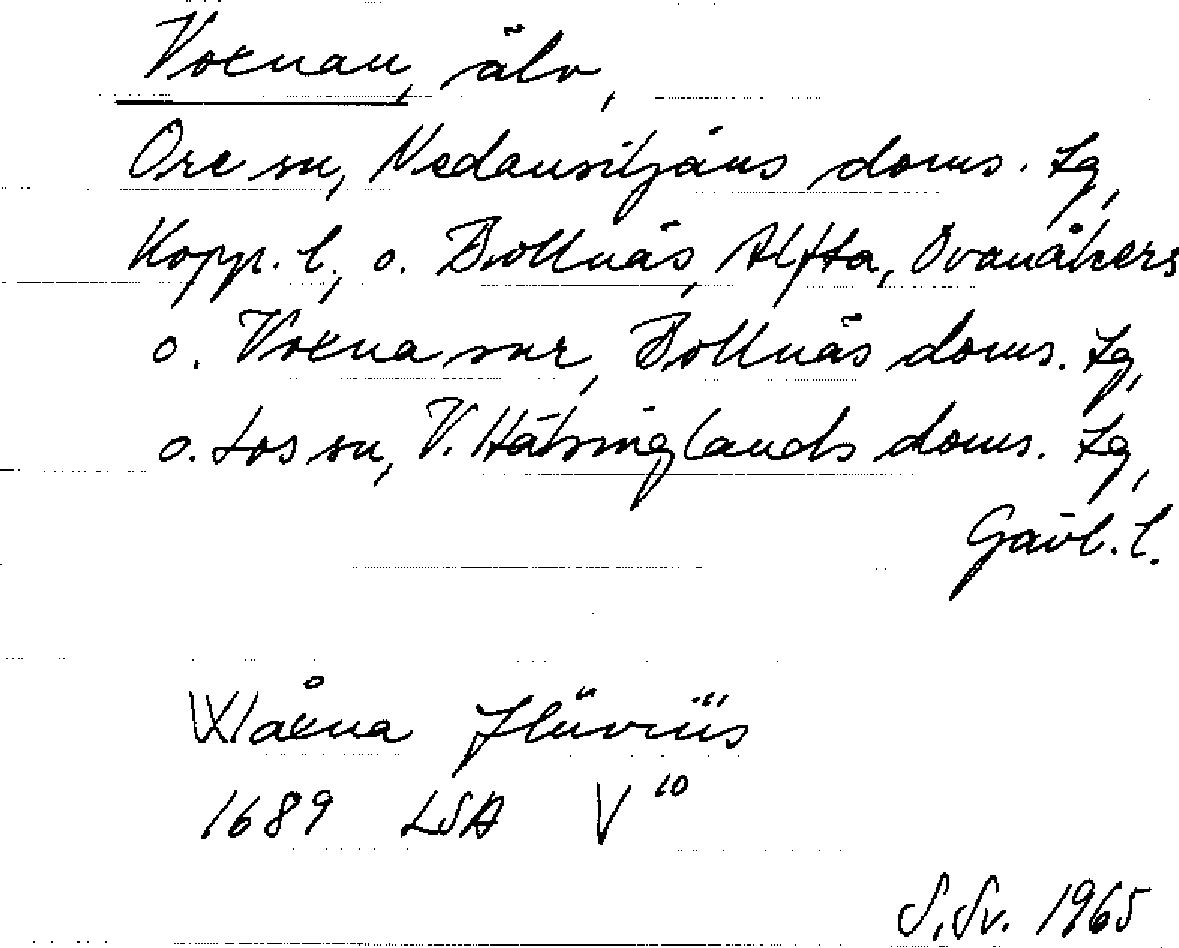 Voxnan, älv,
Ore sn, Nedansiljans doms. tg,
Kopp. l., o. Bollnäs, Alfta, Ovanåkers
o. Voxna snr, Bollnäs doms. tg,
o. Los sn, V. Hälsinglands doms. tg,
Gävl. l.
Wåxna Flüviüs
1689 LSA V 10
S. Sv. 1965